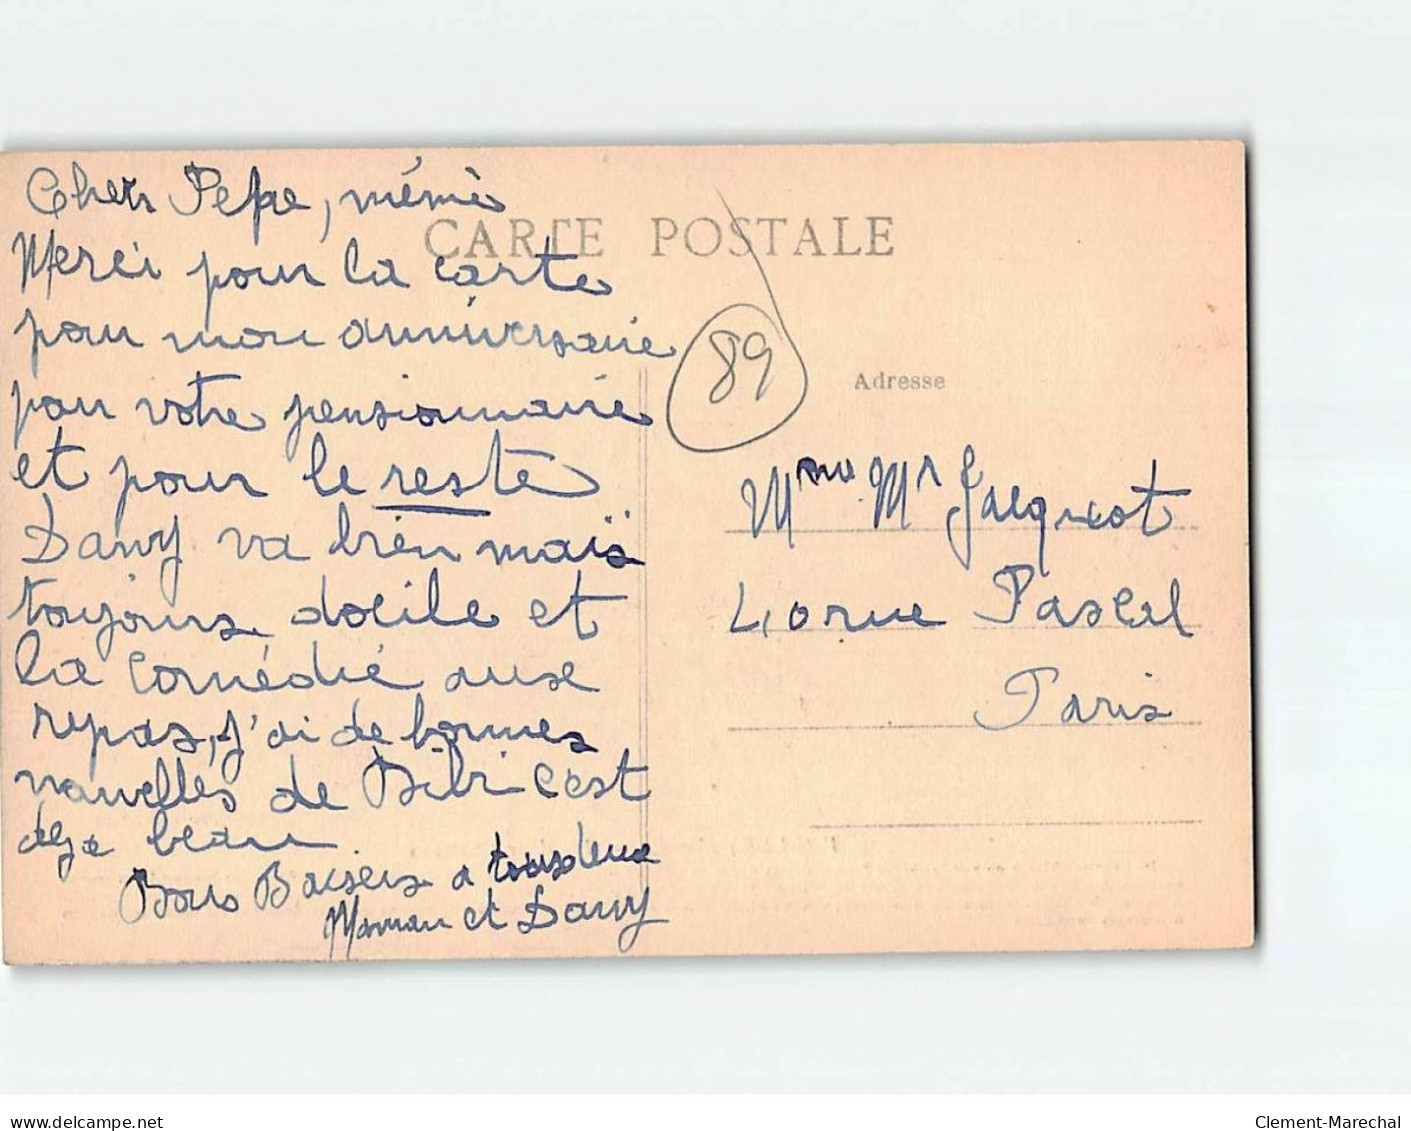 Cher Pepe, mémé
Merci pour la carte
pour mon anniversaire
pour votre pensionnaire
et pour le reste
Dany va bien mais
toujours docile et
la comédie aux
repas, j'ai de bonnes
nouvelles de Bibi c'est
deja beau
Bons Baisers a tous deux
Maman et Dany
CARTE POSTALE
89
Adresse
Mme Mr Jacquot
rue Pascal
Paris
delcampe.net
Clement-Marechal